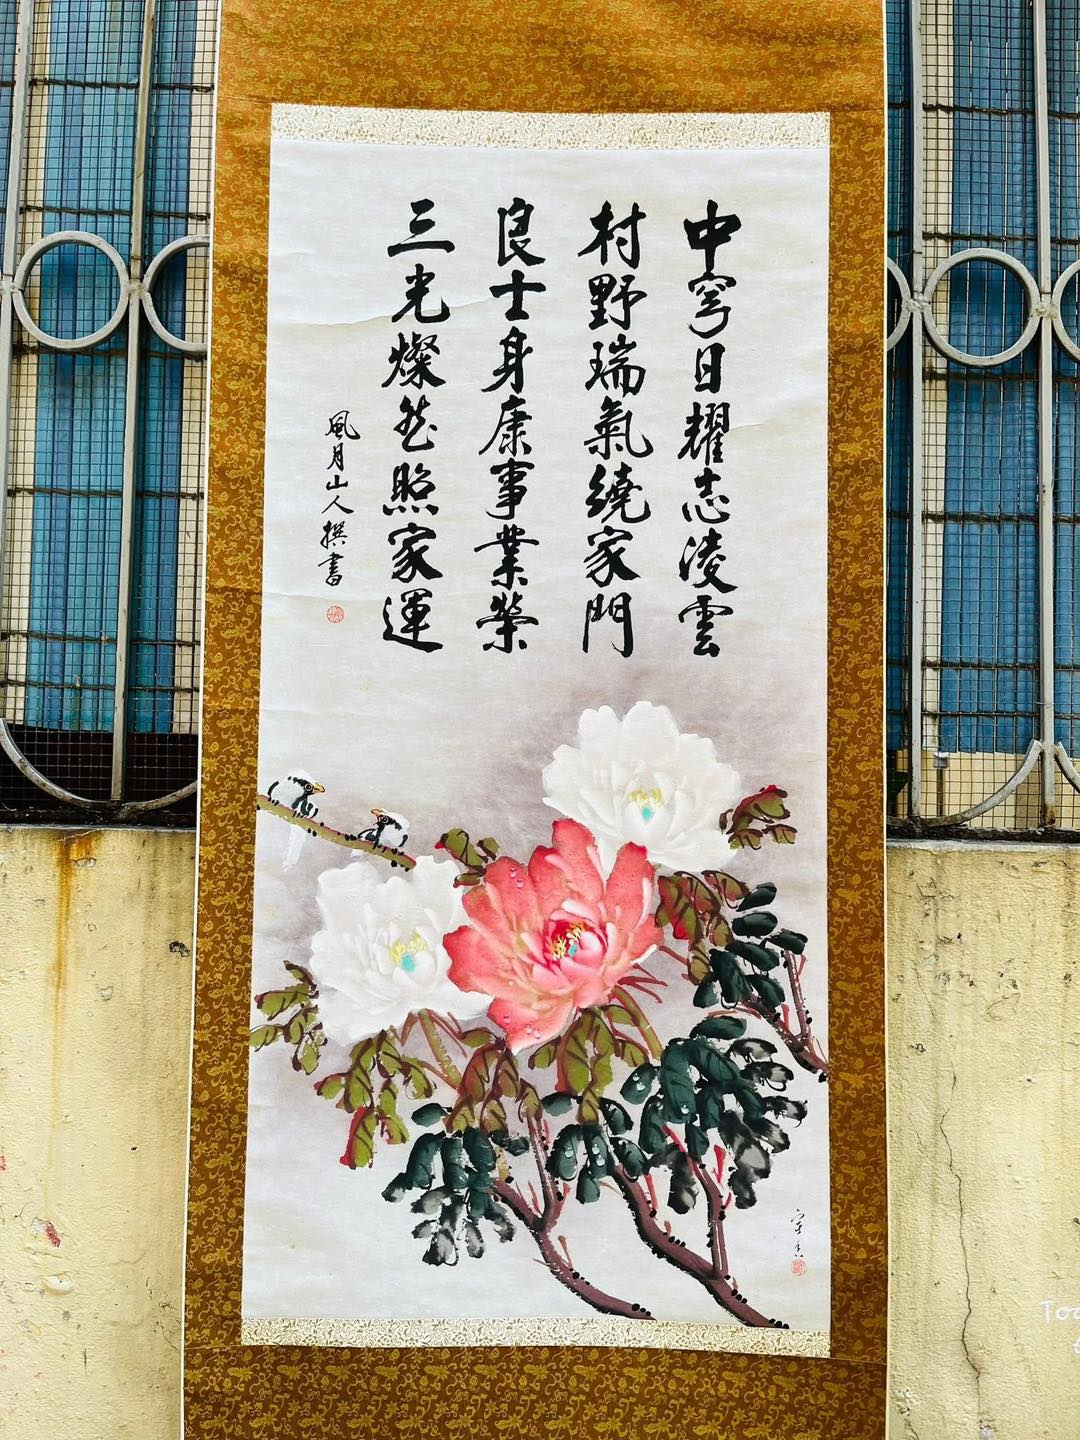 中穹日耀志凌雲
村野瑞氣繞家門
良士身康事業榮
三光燦然照家運
風月山人撰書